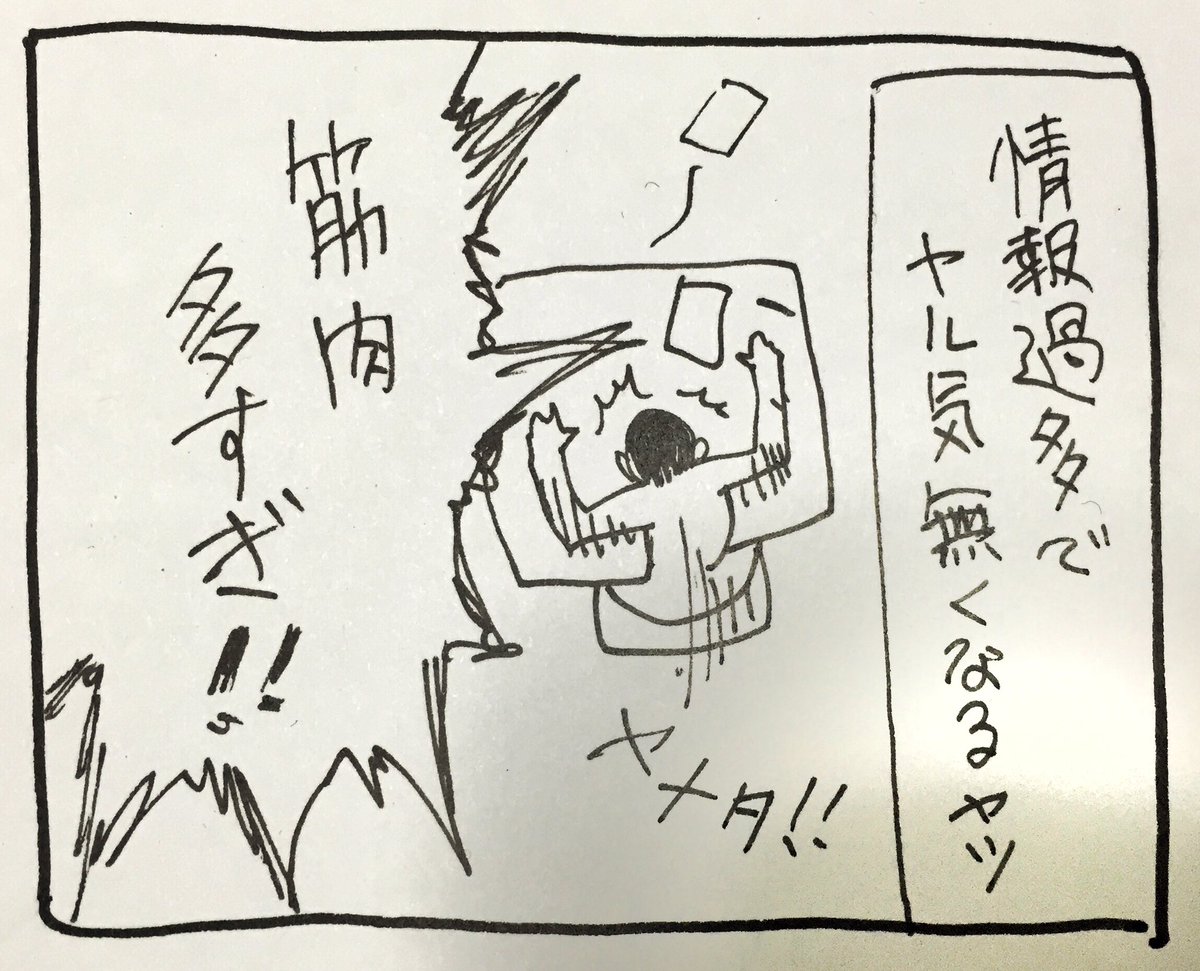 情報過多で
ヤル気無くなるヤツ
筋肉
多すぎ!!
ヤメタ!!